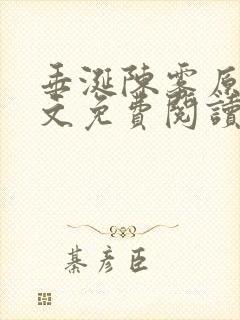 垂涎陳雾原
文免費閱讀
綦彦臣